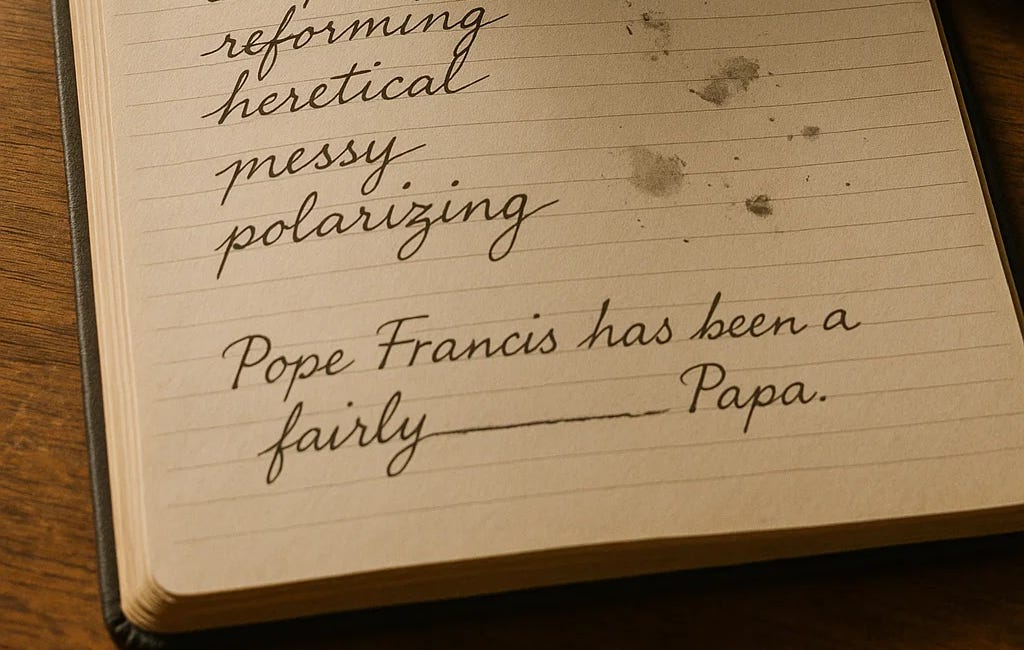 reforming
heretical
messy
polarizing
Pope Francis has been a
fairly Papa.